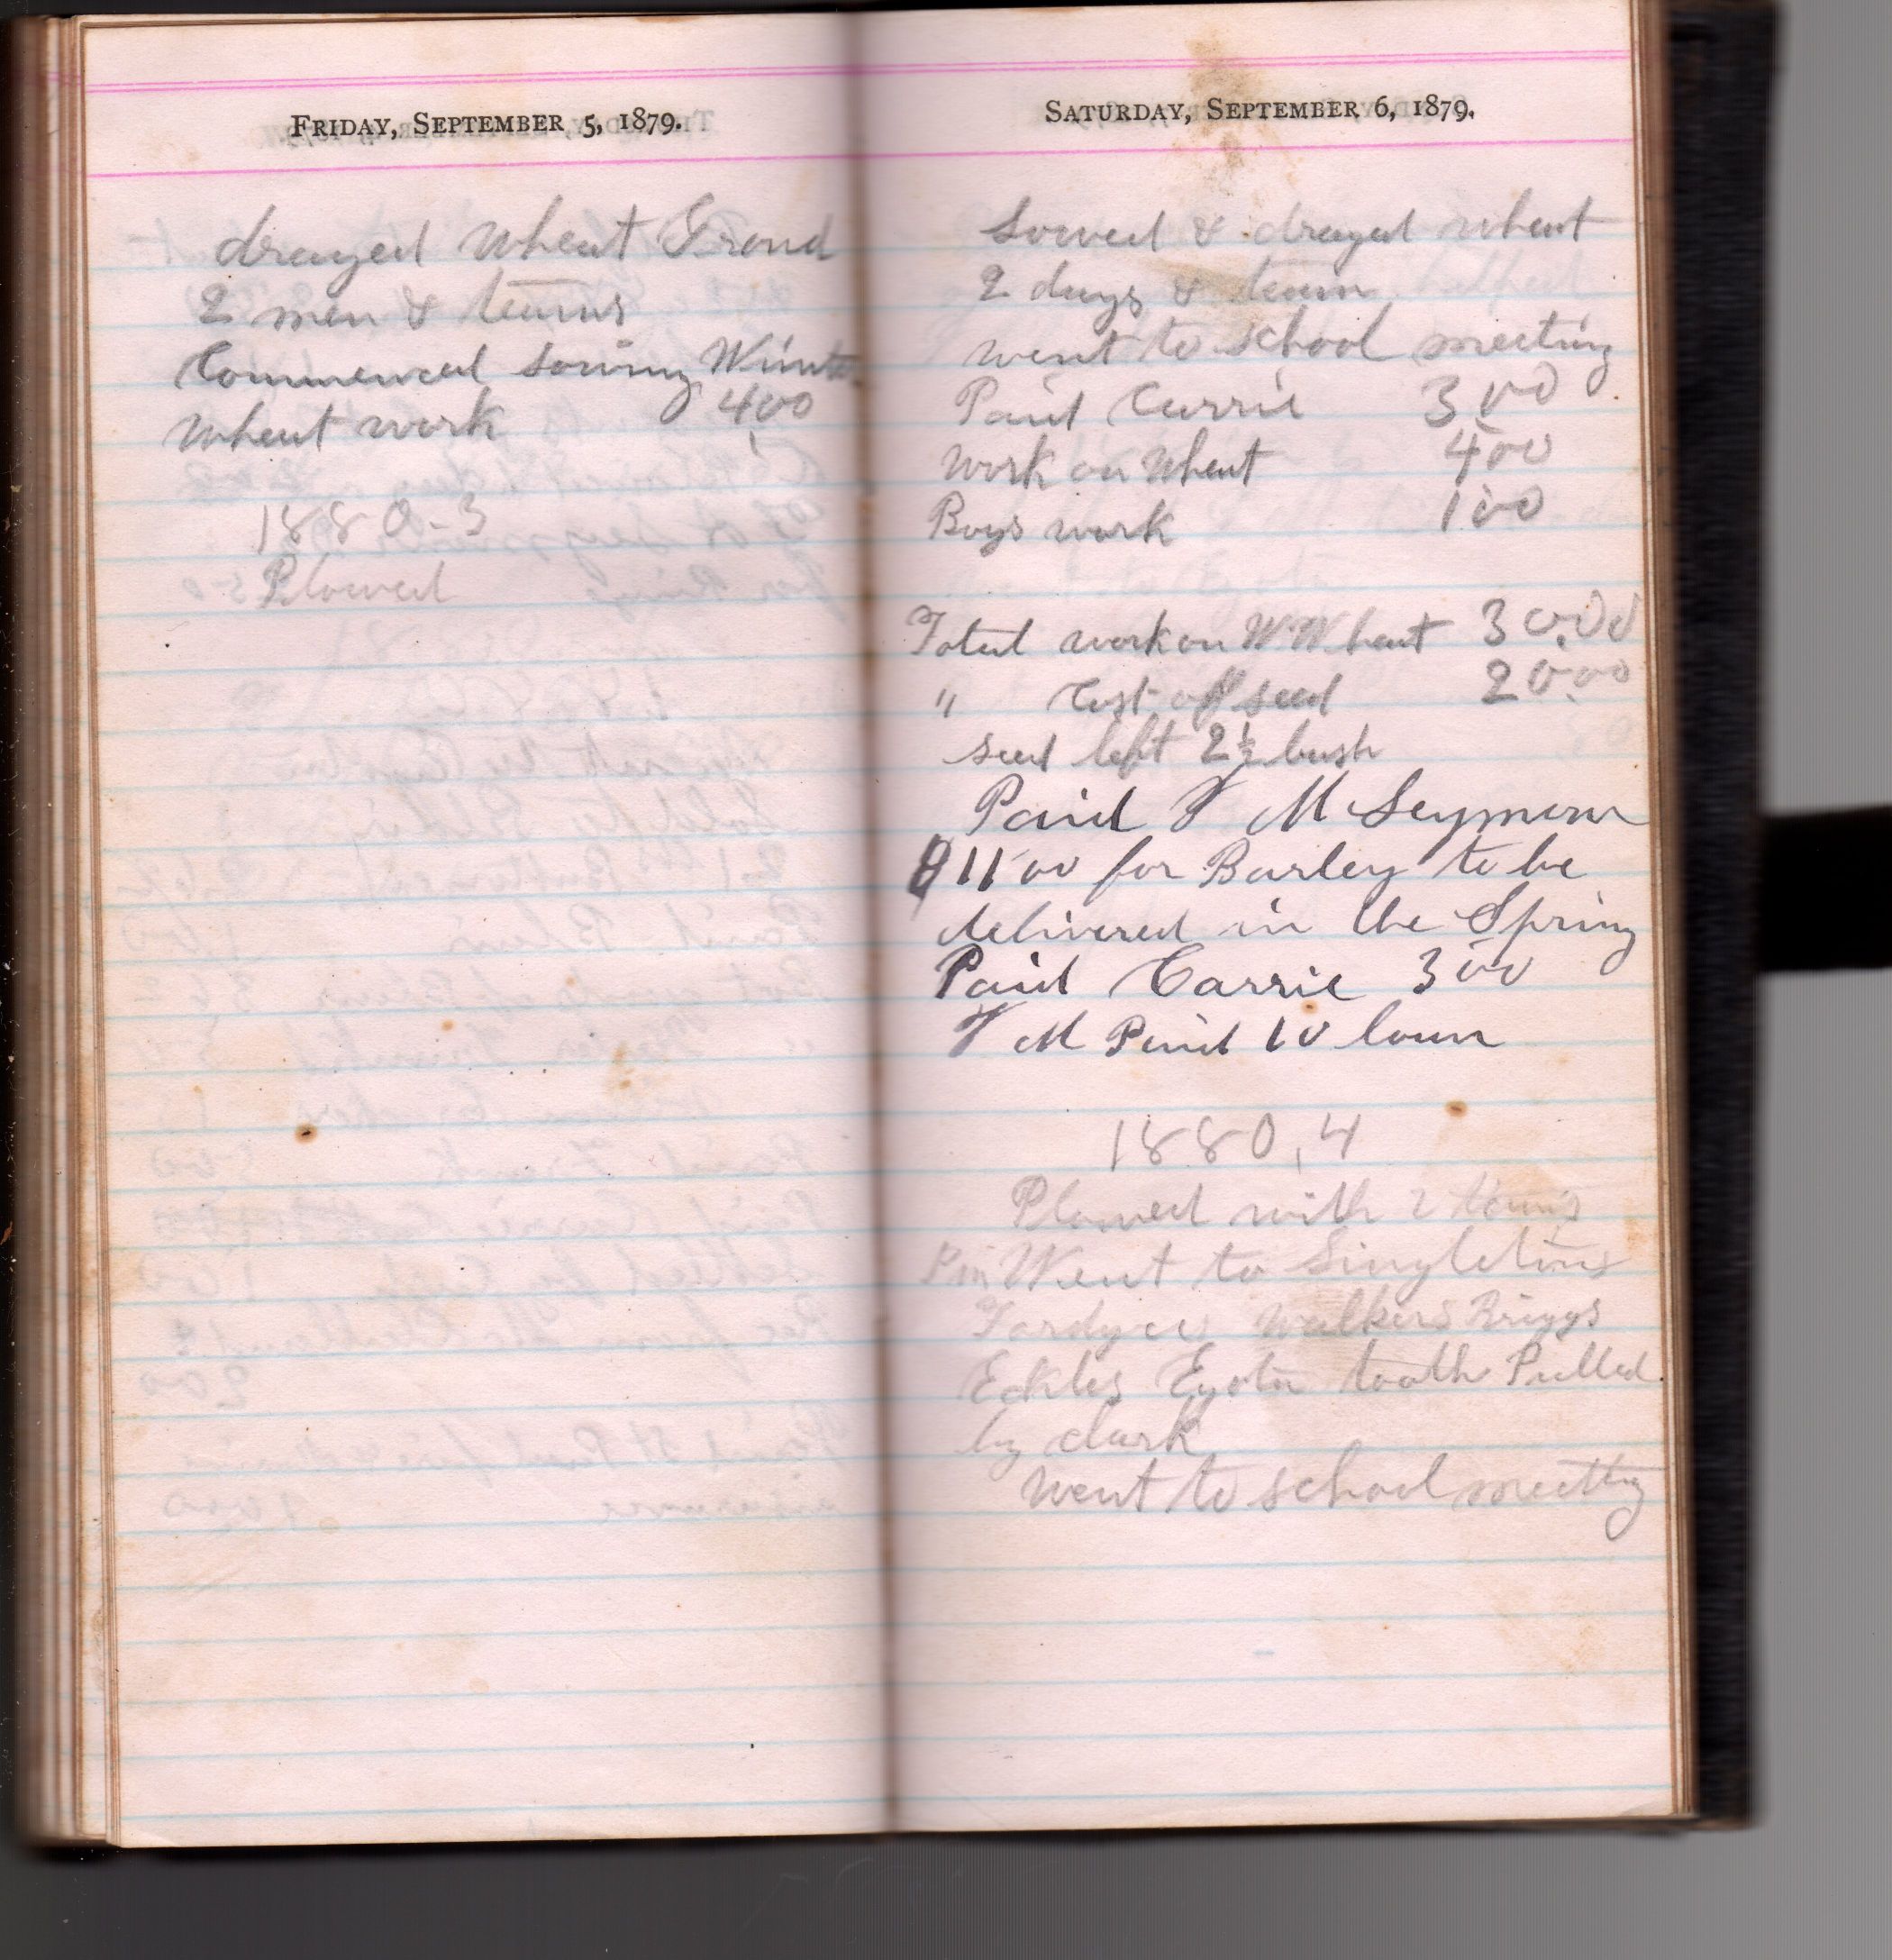 FRIDAY, SEPTEMBER 5, 1879.
draged Wheat Grond
2 men & teams
Commenced sowing Winter
Wheat work 4.00
1880-3
Plowed
SATURDAY, SEPTEMBER 6, 1879.
Sowed & draged wheat
2 days & team
went to school meeting
Paid Carrie 3 00
Work on Wheat 4 00
Boys work 1 00
Total work on W. Wheat 30.00
" Cost off seed 20.00
seed left 2½ bush
Paid M Seymour
$11 00 for Barley to be
delivered in the Spring
Paid Carrie 3 00
M Paid 10 loan
1880, 4
Plowed with 2 teams
Went to Singletons
Fordyces Walkers Briggs
Eckles Eyota tooth Pulled
by dark
Went to school meetting